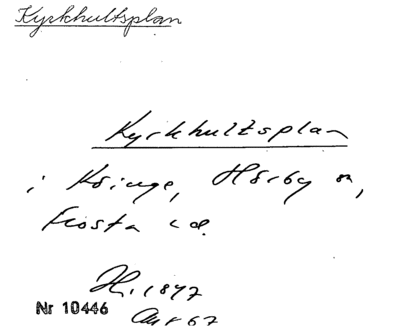 Kyrkhultsplan
Kyrkhultsplan
i Köinge, Hörby sn,
Frosta hd.
H. 1847
Nr 10446